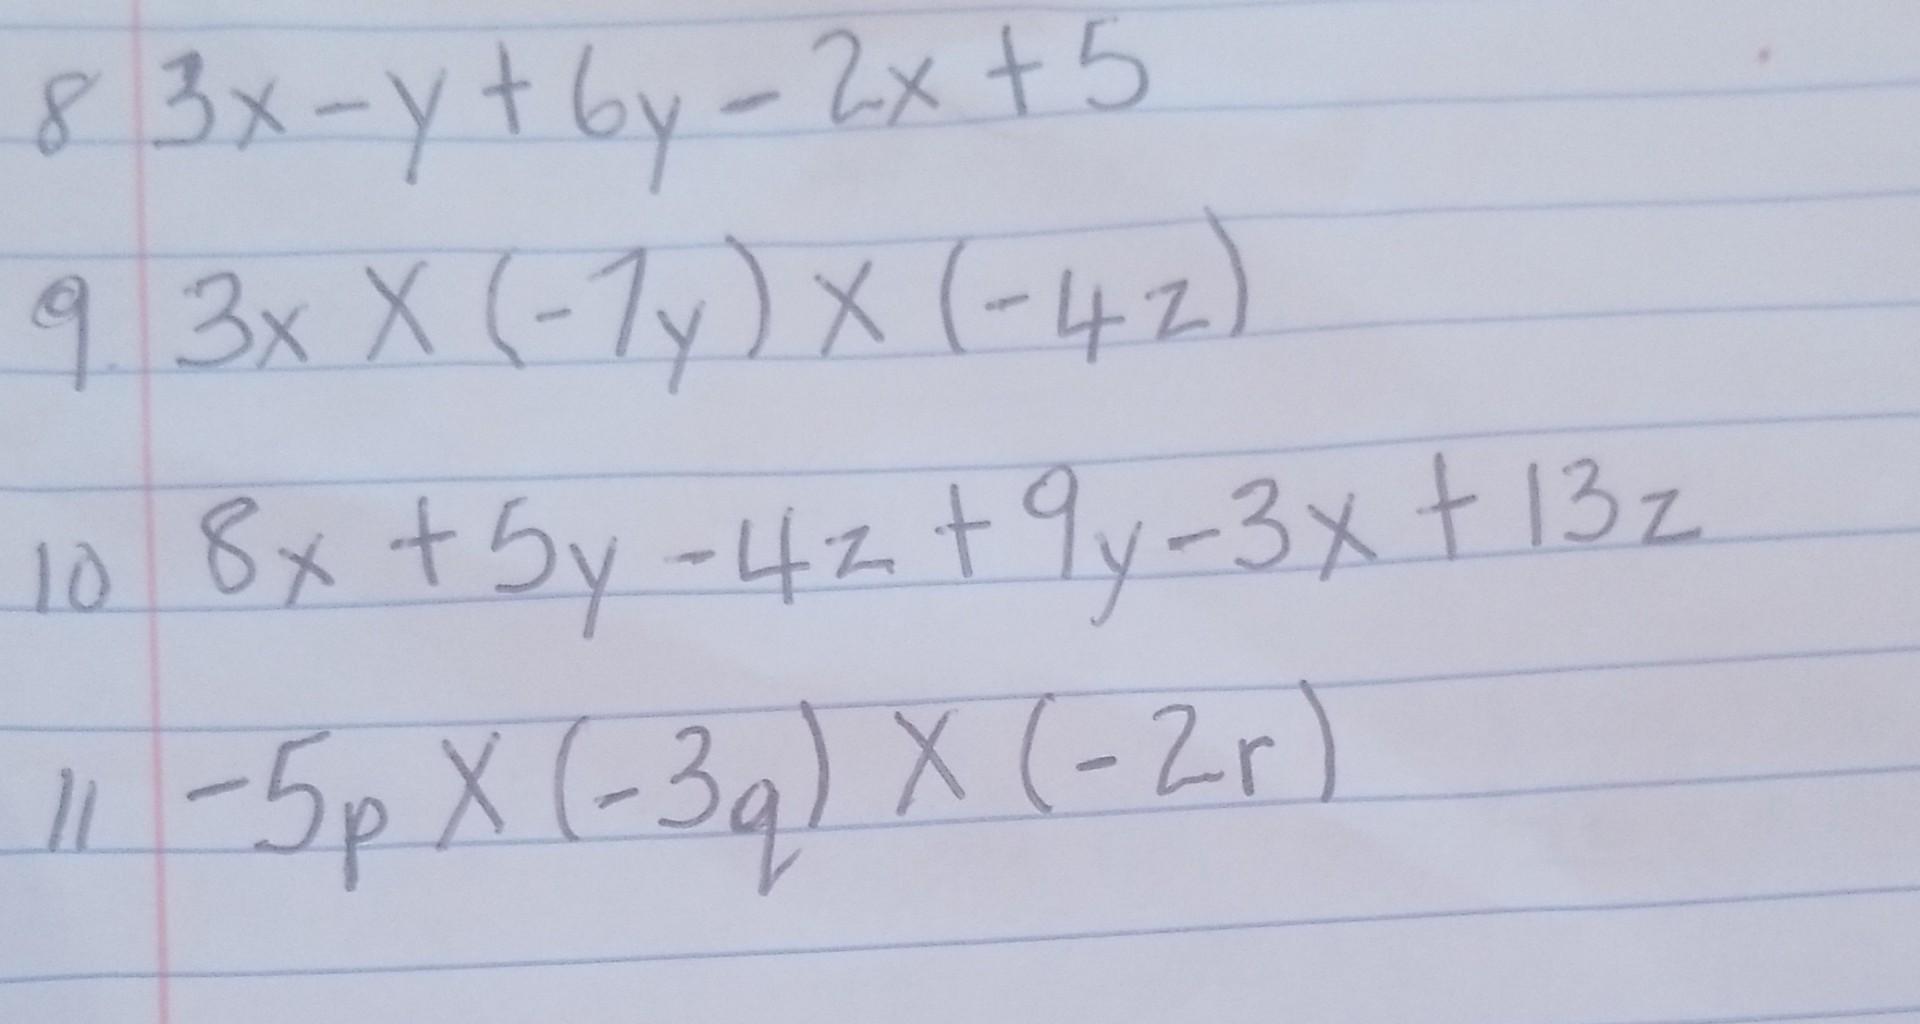 8 3x - y + 6y - 2x + 5
9. 3x X (-7y) X (-4z)
10 8x + 5y - 4z + 9y - 3x + 13z
11 -5p X (-3q) X (-2r)